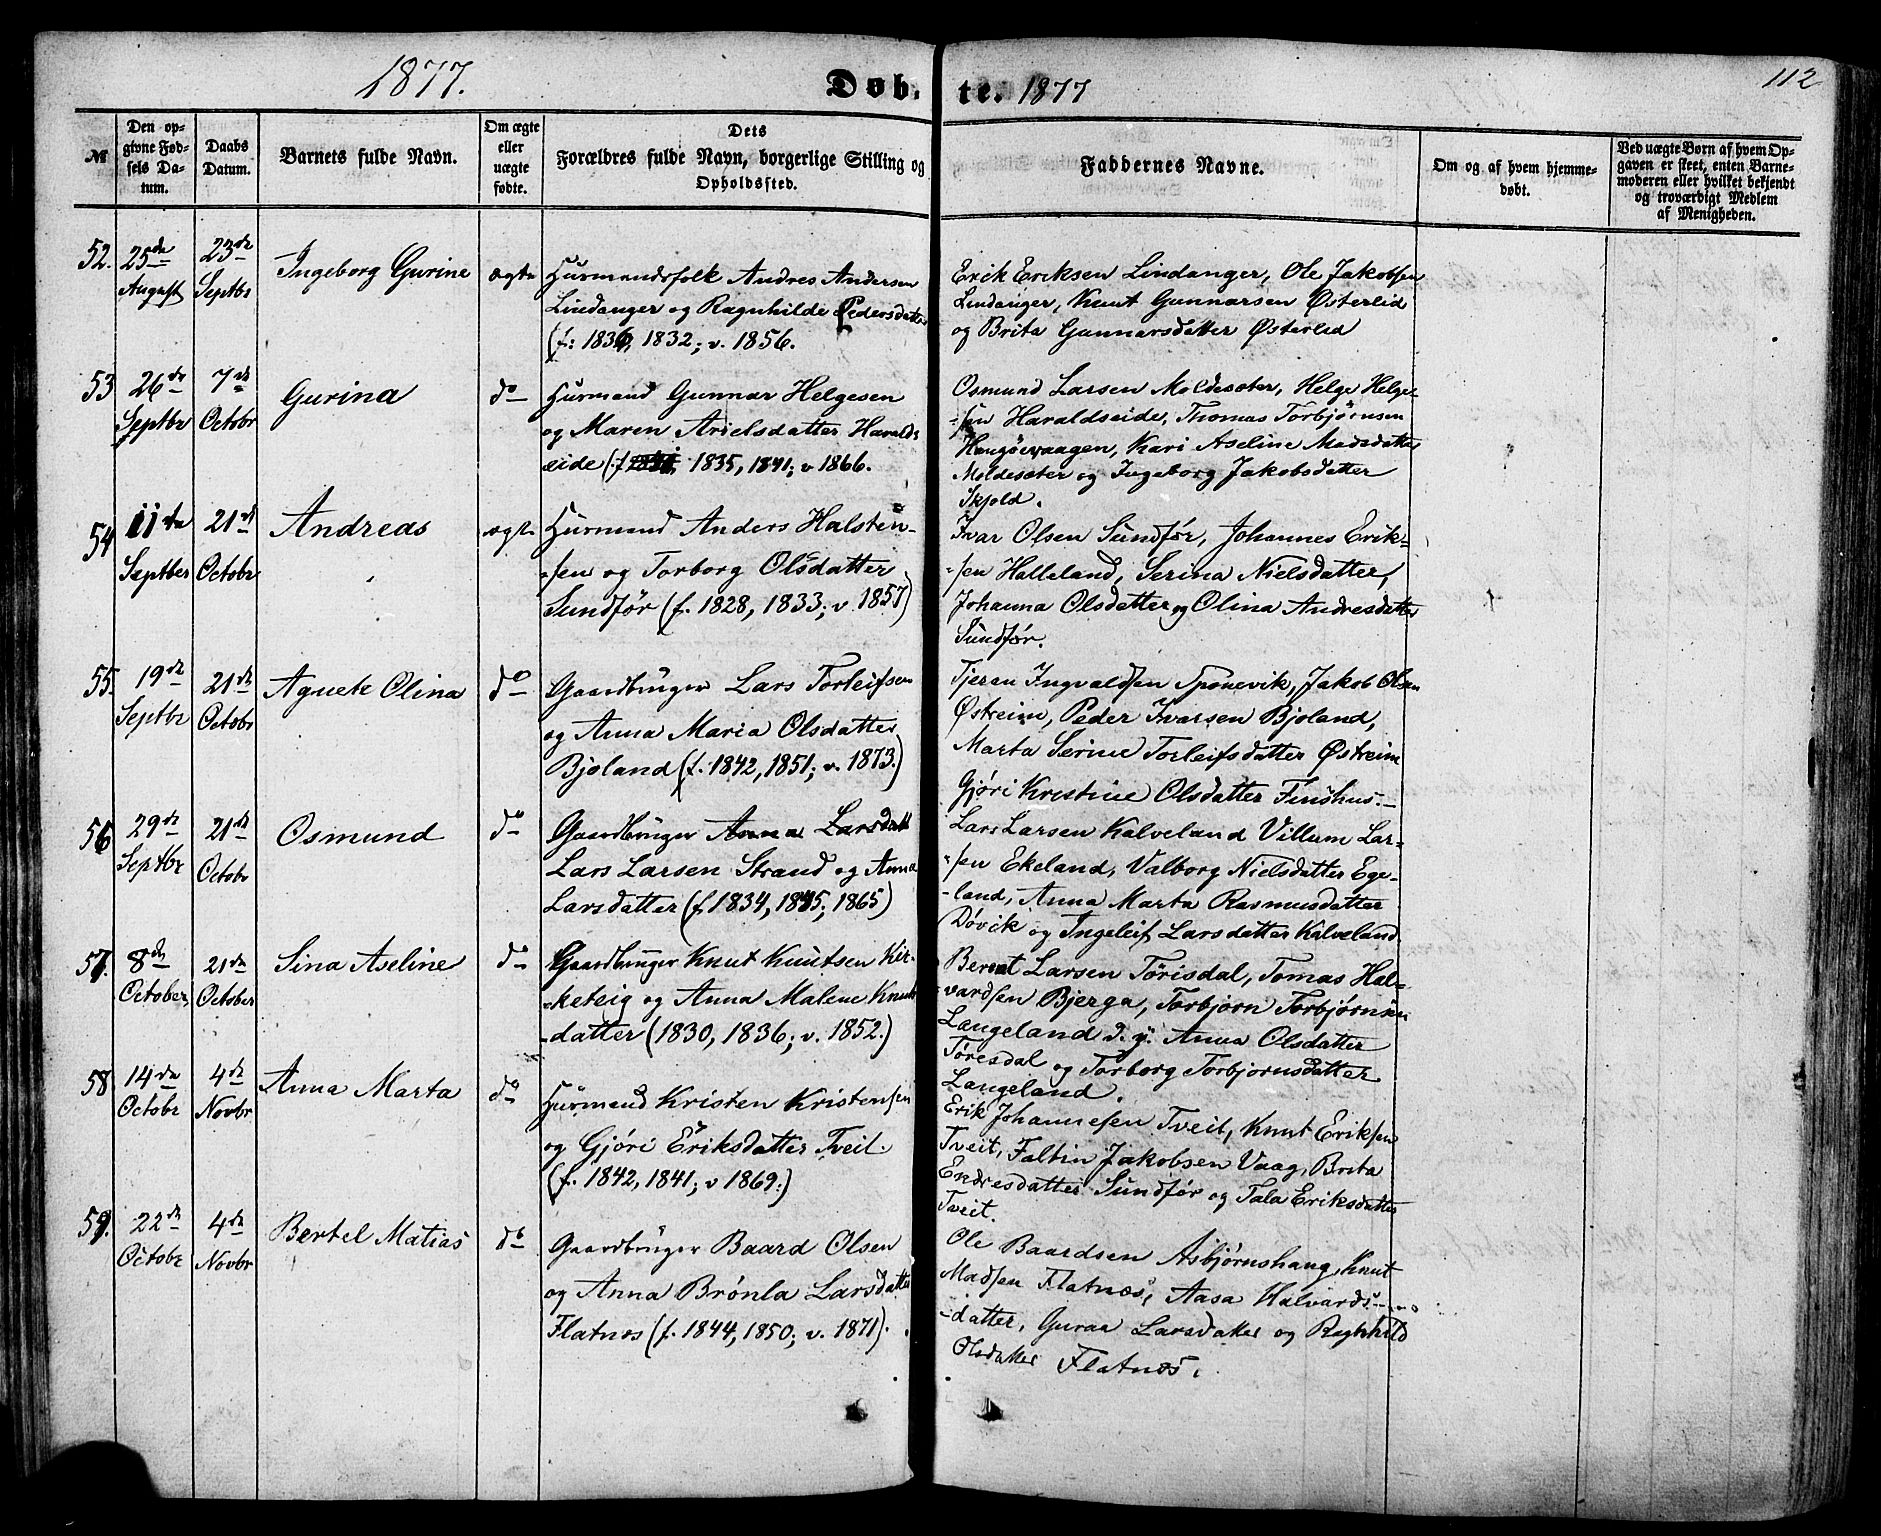 1877.
Døb.
te. 1877
112
№
Den op-
givne Fød-
sels Da-
tum.
Daabs
Datum.
Barnets fulde Navn.
Om ægte
eller
uægte
fødte.
Dets
Forældres fulde Navn, borgerlige Stilling og
Opholdssted.
Faddernes Navne.
Om og af hvem hjemme-
døbt.
Ved uægte Børn af hvem Op-
gaven er skeet, enten Barne-
moderen eller hvilket bekjendt
og troværdigt Medlem
af Menigheden.
52.
25de
August
23de
Septbr
Ingeborg Gurine
ægte
Huusmandsfolk Andres Andersen
Lindanger og Ragnhilde Pedersdatter
(f: 1836, 1832; v. 1856.
Erik Eriksen Lindanger, Ole Jakobsen
Lindanger, Knut Gunnarsen Østerlid
og Brita Gunnarsdatter Østerlid
53
26de
Septbr
7de
Octobr
Gurina
do
Huusmand Gunnar Helgesen
og Maren Arielsdatter Haralds
eide (f. 1835, 1841; v 1866.
Osmund Larsen Moldesæter, Helge Helge-
-sen Haraldseide, Thomas Torbjørnsen
Haugsevaagen, Kari Aseline Madsdatter
Moldesæter og Ingeborg Jakobsdatter
Skjold.
54
11te
Septber
21de
Octobr
Andreas
ægte
Huusmand Anders Halsten-
-sen og Torborg Olsdatter
Sundfør (f. 1828, 1833; v. 1857)
Ivar Olsen Sundfør, Johannes Erik-
-sen Halleland, Serina Nielsdatter,
Johanna Olsdatter og Olina Andresdatter
Sundfør.
55.
19de
Septbr
21de
Octobr
Agnete Olina
do
Gaardbruger Lars Torleifsen
og Anna Maria Olsdatter
Bjoland (f. 1842, 1851; v. 1873.)
Tjeran Ingvaldsen Sponevik, Jakob Olsen
Østreim, Peder Ivarsen Bjoland,
Marta Serine Torleifsdatter Østreim
Gjøri Kristine Olsdatter Finshus.-
56
29de
Septbr
21de
Octobr
Osmund
do
Gaardbruger Anna Larsdatt
Lars Larsen Strand og Anna
Larsdatter (f. 1834, 1845; 1865)
Lars Larsen Kalveland Villum Lar-
-sen Ekeland, Valborg Nielsdatter Ege-
-land, Anna Marta Rasmusdatter
Døvik og Ingeleif Larsdatter Kalveland
57.
8de
October,
21de
October
Sina Aseline
do
Gaardbruger Knut Knutsen Kir-
-keteig og Anna Malene Knuts
-datter (1830, 1836; v. 1852.)
Berent Larsen Tørisdal, Tomas Hal-
vardsen Bjerga, Torbjørn Torbjørnsen
Langeland d. y. Anna Olsdatter
Tøresdal og Torborg Torbjørnsdatter
Langeland.
58
14de
Octobr
4de
Novbr
Anna Marta
do
Huusmand Kristen Kristensen
og Gjøri Eriksdatter Tveit
(f. 1842, 1841; v 1869.)
Erik Johannesen Tveit, Knut Eriksen
Tveit, Faltin Jakobsen Vaag, Brita
Endresdatter Sundfør og Tala Eriksdatter
Tveit.
59.
22de
Octobr
4de
Novbr
Bertel Matias
do
Gaardbruger Baard Olsen
og Anna Brønla Larsdatter
Flatnes (f. 1844, 1850; v. 1871).
Ole Baardsen Asbjørnshaug, Knut
Madsen Flatnes, Aasa Halvards-
-datter, Guraa Larsdatter og Ragnhild
Olsdatter Flatnes.